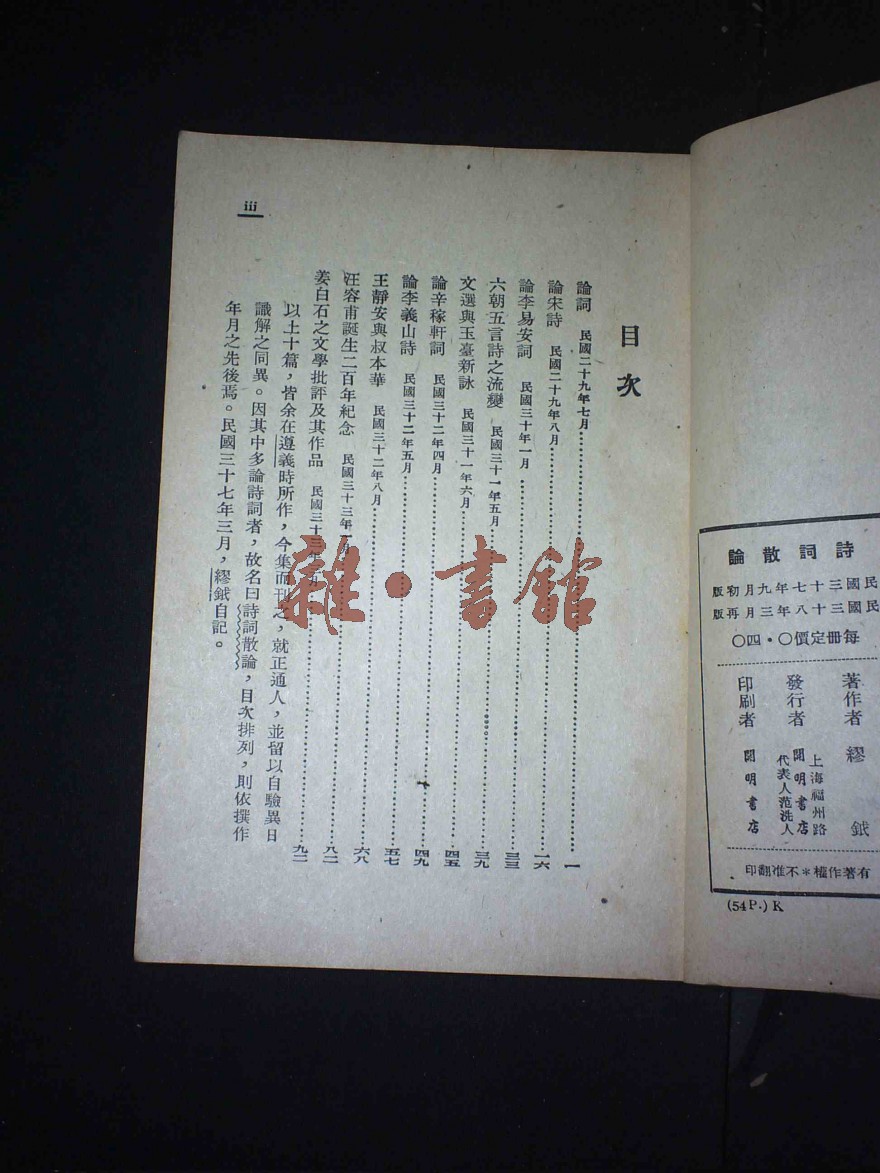 詩詞散論
民國三十七年九月初版
民國三十八年三月再版
每冊定價〇·四〇
著作者 繆鉞
發行者 上海福州路 開明書店 代表人范洗人
印刷者 開明書店
有著作權*不准翻印
(54P.) K
目次
論詞 民國二十九年七月 一
論宋詩 民國二十九年八月 一六
論李易安詞 民國三十年一月
六朝五言詩之流變 民國三十一年五月 三九
文選與玉臺新詠 民國三十一年六月 四五
論辛稼軒詞 民國三十二年四月 四九
論李義山詩 民國三十二年五月 五七
王靜安與叔本華 民國三十二年八月 六八
汪容甫誕生二百年紀念 民國三十三年 八二
姜白石之文學批評及其作品 民國三十三年 九二
以上十篇，皆余在遵義時所作，今集而刊之，就正通人，並留以自驗異日
識解之同異。因其中多論詩詞者，故名曰詩詞散論，目次排列，則依撰作
年月之先後焉。民國三十七年三月，繆鉞自記。
iii
雜·書館